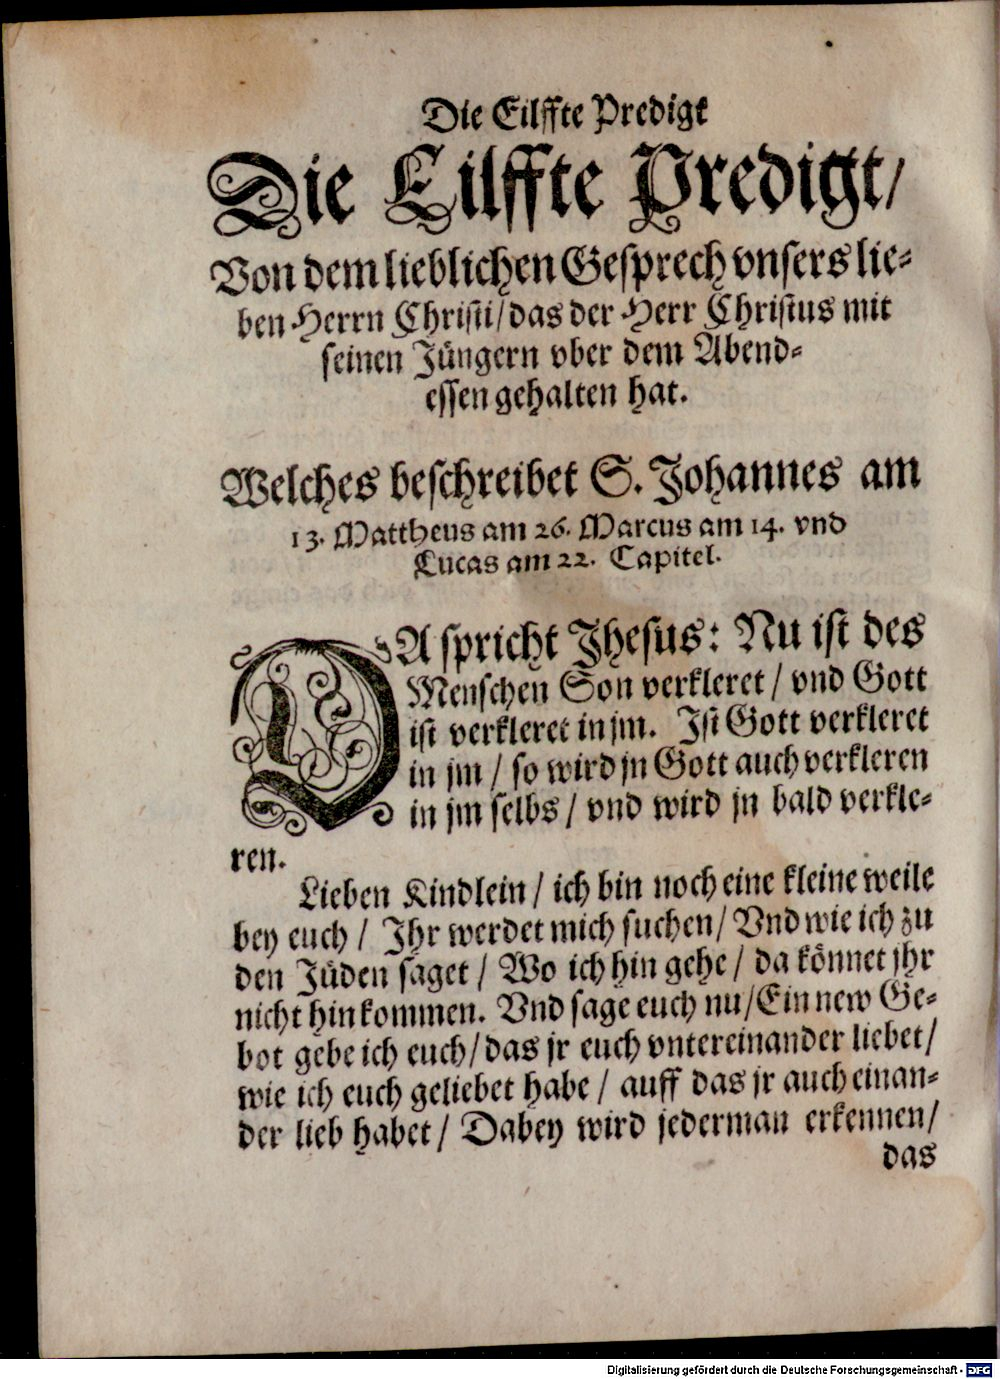 Die Eilffte Predigt
Die Eilffte Predigt/
Von dem lieblichen Gesprech vnsers lie-
ben Herrn Christi/das der Herr Christus mit
seinen Jüngern vber dem Abend-
essen gehalten hat.
Welches beschreibet S. Johannes am
13. Mattheus am 26. Marcus am 14. vnd
Lucas am 22. Capitel.
DA spricht Jhesus: Nu ist des
Menschen Son verkleret / vnd Gott
ist verkleret in jm. Ist Gott verkleret
in jm / so wird jn Gott auch verkleren
in jm selbs / vnd wird jn bald verkle-
ren.
Lieben Kindlein / ich bin noch eine kleine weile
bey euch / Ihr werdet mich suchen/ Vnd wie ich zu
den Jüden saget / Wo ich hin gehe / da könnet jhr
nicht hin kommen. Vnd sage euch nu/Ein new Ge-
bot gebe ich euch/das jr euch vntereinander liebet/
wie ich euch geliebet habe / auff das jr auch einan-
der lieb habet/ Dabey wird jederman erkennen/
das
Digitalisierung gefördert durch die Deutsche Forschungsgemeinschaft - DFG